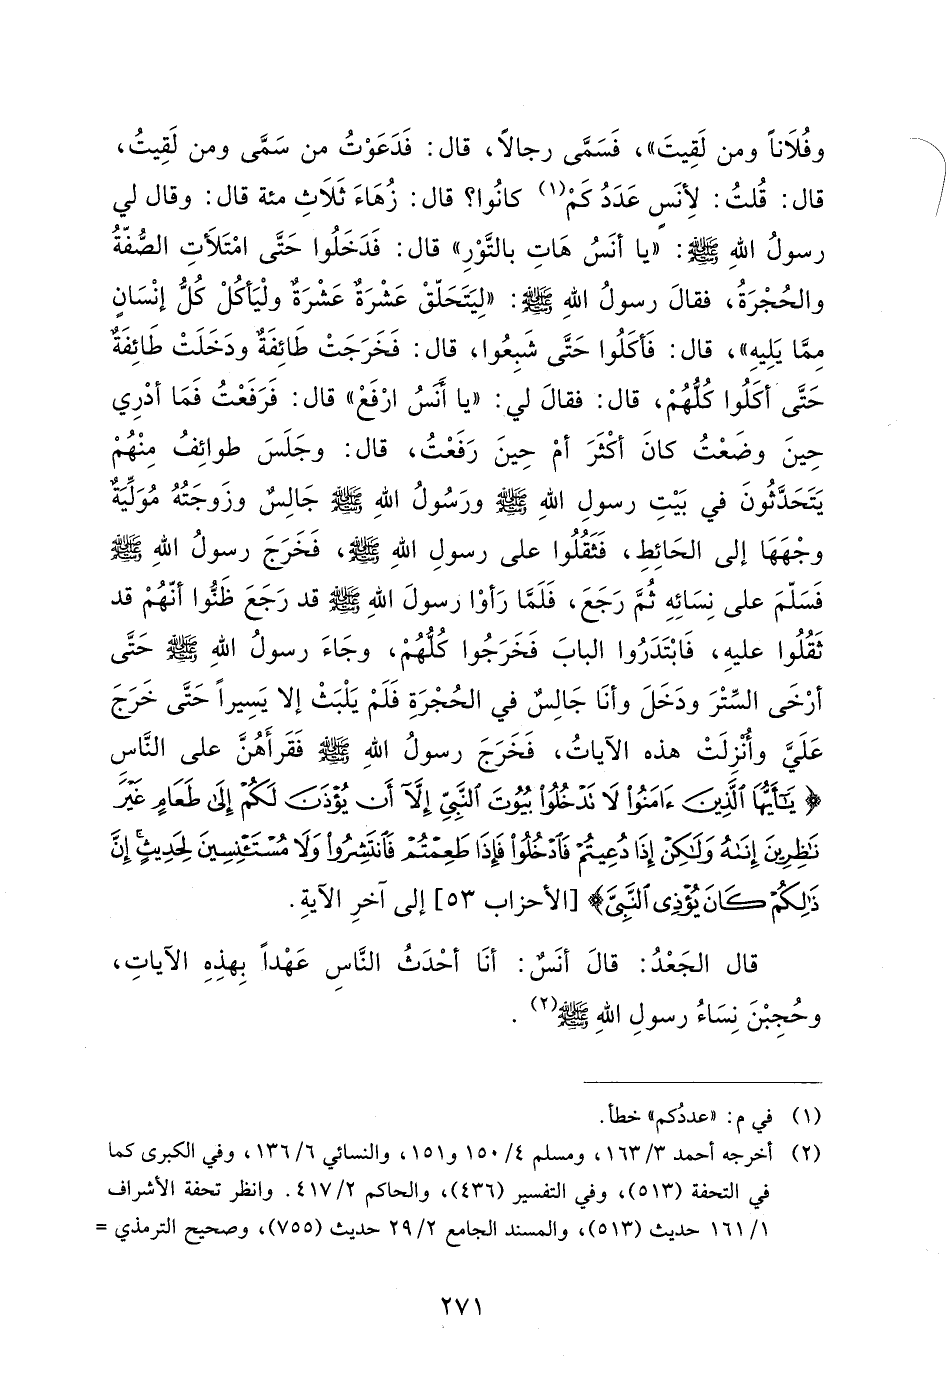 وفُلَاناً ومن لَقِيتَ»، فَسَمَّى رجالاً، قال: فَدَعَوْتُ من سَمَّى ومن لَقِيتُ،
قال: قُلتُ: لِأنَسٍ عَدَدُ كَمْ(١) كانُوا؟ قال: زُهَاءَ ثَلَاثِ مئة قال: وقال لي
رسولُ اللهِ ﷺ: «يا أنَسُ هَاتِ بالتَّوْرِ» قال: فَدَخَلُوا حَتَّى امْتَلأتِ الصُّفّةُ
والحُجْرَةُ، فقالَ رسولُ اللهِ ﷺ: «لِيَتَحَلّقْ عَشْرَةٌ عَشْرَةٌ ولْيَأكُلْ كُلُّ إنْسَانٍ
مِمَّا يَلِيهِ»، قال: فَأكَلُوا حَتَّى شَبِعُوا، قال: فَخَرَجَتْ طَائِفَةٌ ودَخَلَتْ طَائِفَةٌ
حَتَّى أكَلُوا كُلُّهُمْ، قال: فقالَ لي: «يا أَنَسُ ارْفَعْ» قال: فَرَفَعْتُ فَمَا أدْرِي
حِينَ وضَعْتُ كانَ أكْثَرَ أمْ حِينَ رَفَعْتُ، قال: وجَلَسَ طوائِفُ مِنْهُمْ
يَتَحَدَّثُونَ في بَيْتِ رسولِ اللهِ ﷺ ورَسُولُ اللهِ ﷺ جَالِسٌ وزَوجَتُهُ مُوَلّيَةٌ
وجْهَهَا إلى الحَائِطِ، فَثَقُلُوا على رسولِ اللهِ ﷺ، فَخَرَجَ رسولُ اللهِ ﷺ
فَسَلّمَ على نِسَائِهِ ثُمَّ رَجَعَ، فَلَمَّا رَأوْا رسولَ اللهِ ﷺ قد رَجَعَ ظَنُّوا أنّهُمْ قد
ثَقُلُوا عليهِ، فَابْتَدَرُوا البابَ فَخَرَجُوا كُلُّهُمْ، وجَاءَ رسولُ اللهِ ﷺ حَتَّى
أرْخَى السِّتْرَ ودَخَلَ وأنَا جَالِسٌ في الحُجْرَةِ فَلَمْ يَلْبَثْ إلا يَسِيراً حَتَّى خَرَجَ
عَلَيَّ وأُنْزِلَتْ هذه الآياتُ، فَخَرَجَ رسولُ اللهِ ﷺ فَقَرأهُنَّ على النَّاسِ
﴿ يَٰٓأَيُّهَا ٱلَّذِينَ ءَامَنُواْ لَا تَدْخُلُواْ بُيُوتَ ٱلنَّبِىِّ إِلَّآ أَن يُؤْذَنَ لَكُمْ إِلَىٰ طَعَامٍ غَيْرَ
نَٰظِرِينَ إِنَىٰهُ وَلَٰكِنْ إِذَا دُعِيتُمْ فَٱدْخُلُواْ فَإِذَا طَعِمْتُمْ فَٱنتَشِرُواْ وَلَا مُسْتَـْٔنِسِينَ لِحَدِيثٍۚ إِنَّ
ذَٰلِكُمْ كَانَ يُؤْذِى ٱلنَّبِىَّ﴾ [الأحزاب ٥٣] إلى آخرِ الآيةِ.
قال الجَعْدُ: قالَ أنَسٌ: أنَا أحْدَثُ النَّاسِ عَهْداً بِهذِهِ الآياتِ،
وحُجِبْنَ نِسَاءُ رسولِ اللهِ ﷺ(٢).
(١) في م: «عددُكم» خطأ.
(٢) أخرجه أحمد ٣/ ١٦٣، ومسلم ٤/ ١٥٠ و١٥١، والنسائي ٦/ ١٣٦، وفي الكبرى كما
في التحفة (٥١٣)، وفي التفسير (٤٣٦)، والحاكم ٢/ ٤١٧. وانظر تحفة الأشراف
١/ ١٦١ حديث (٥١٣)، والمسند الجامع ٢/ ٢٩ حديث (٧٥٥)، وصحيح الترمذي =
٢٧١